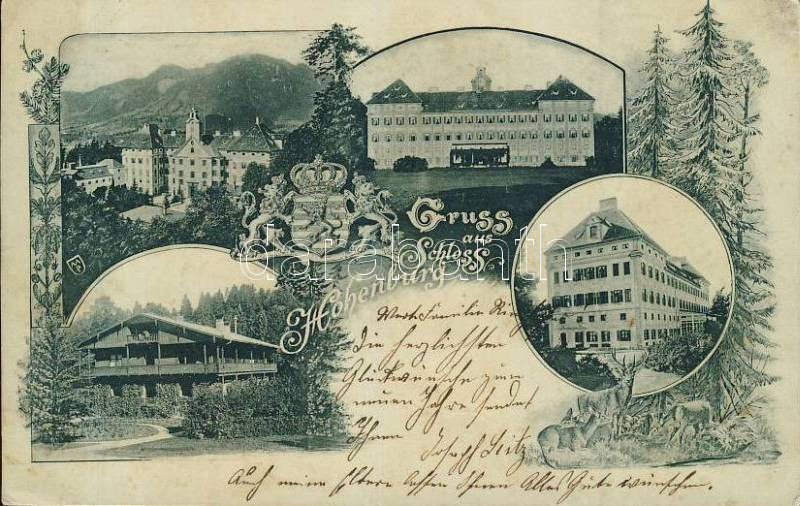 Gruss
aus
Schloss
Hohenburg
darabanth
Werte Familie
Die herzlichsten
Glückwünsche zum
neuen Jahre sendet
Ihnen
Joseph Seitz
Auch meine Eltern lassen Ihnen Alles Gute wünschen.